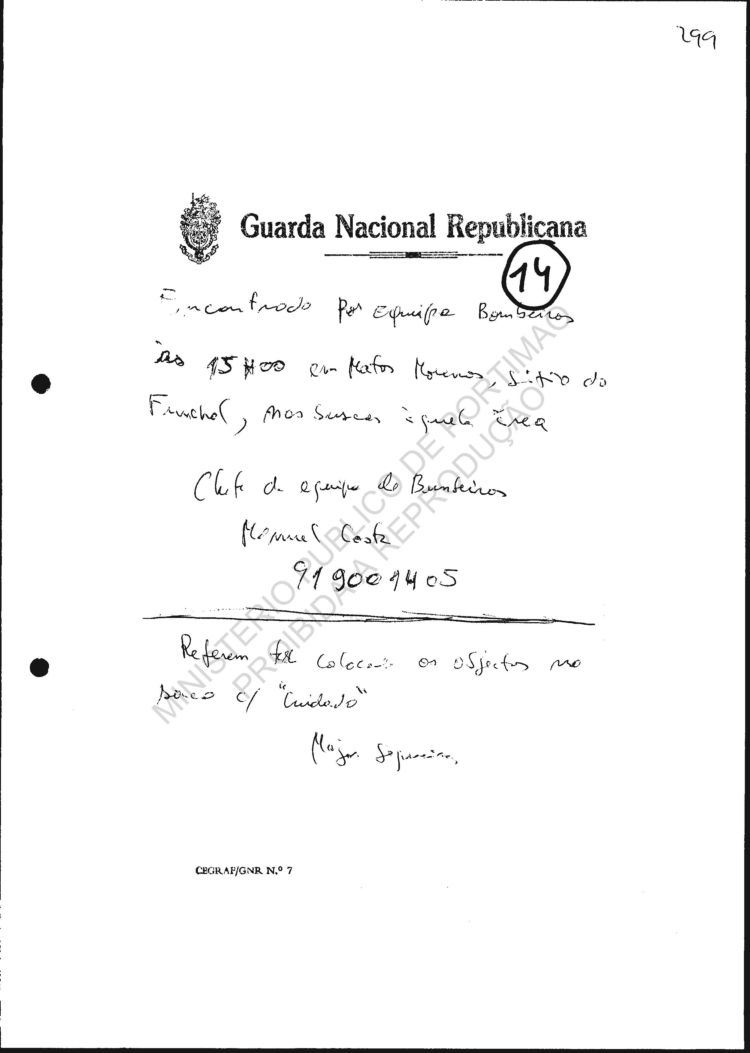 299
Guarda Nacional Republicana
14
Encontrado por equipa Bombeiros
às 15H00 em Matos Morenos, sítio do
Funchal, nas buscas àquela área
Chefe de equipa de Bombeiros
Manuel Costa
919001405
Referem ter colocado os objectos no
saco c/ "Cuidado"
Major Sequeira,
MINISTERIO PUBLICO DE PORTIMAO
PROIBIDA A REPRODUÇÃO
CEGRAF/GNR N.º 7